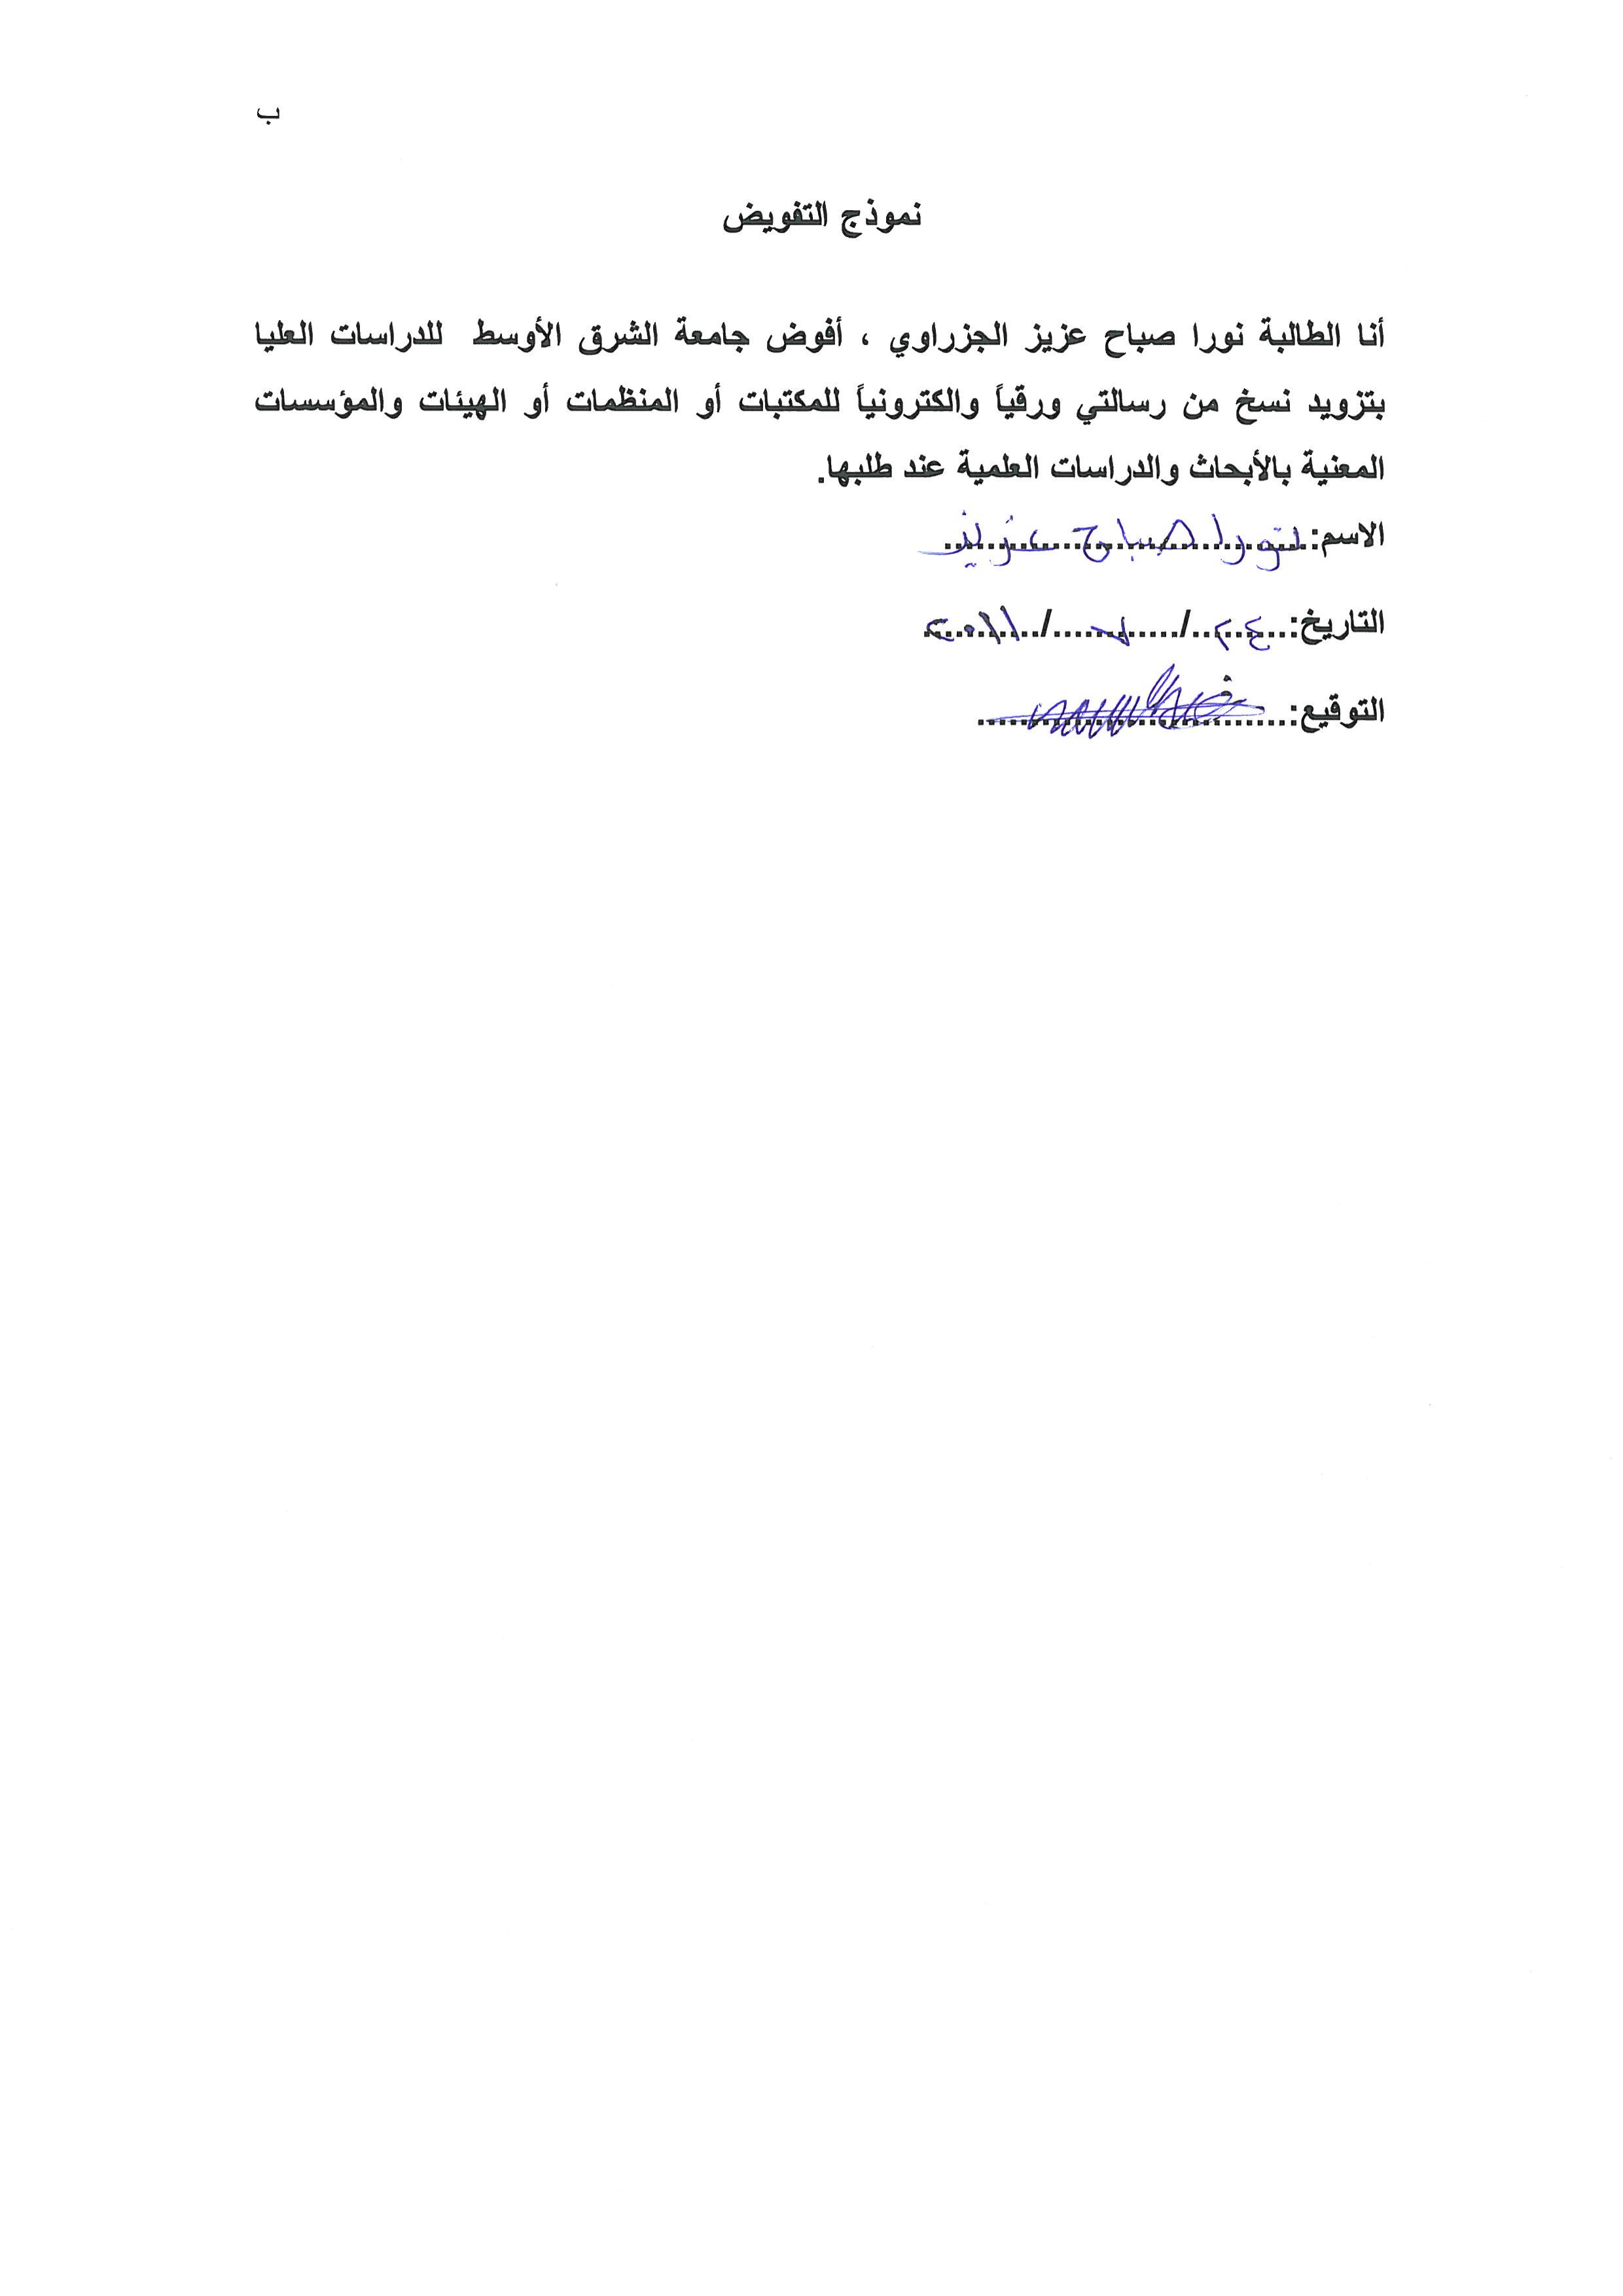 ب
نموذج التفويض
أنا الطالبة نورا صباح عزيز الجزراوي ، أفوض جامعة الشرق الأوسط للدراسات العليا
بتزويد نسخ من رسالتي ورقياً والكترونياً للمكتبات أو المنظمات أو الهيئات والمؤسسات
المعنية بالأبحاث والدراسات العلمية عند طلبها.
الاسم: نورا صباح عزيز
التاريخ: ٢٤ / ٧ / ٢٠١١
التوقيع: